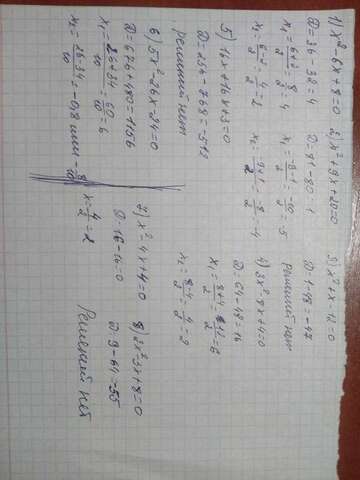 1) x²-6x+8=0
D=36-32=4
x₁=6+2/2=8/2=4
x₂=6-2/2=4/2=2
2) x²+9x+20=0
D=81-80=1
x₁=-9-1/2=-10/2=-5
x₂=-9+1/2=-8/2=-4
3) x²+x-12=0
D=1-48=-47
решений нет
4) 3x²-8x+4=0
D=64-48=16
x₁=8+4/2=12/2=6
x₂=8-4/2=4/2=2
5) 16x+16x+3=0
D=256-768=-512
решений нет
6) 5x²-26x-24=0
D=676+480=1156
x₁=26+34/10=60/10=6
x₂=26-34/10=-0,8 или -8/10
7) x²-4x+4=0
D=16-16=0
x=4/2=2
8) 2x²-3x+8=0
D=9-64=-55
Решений нет